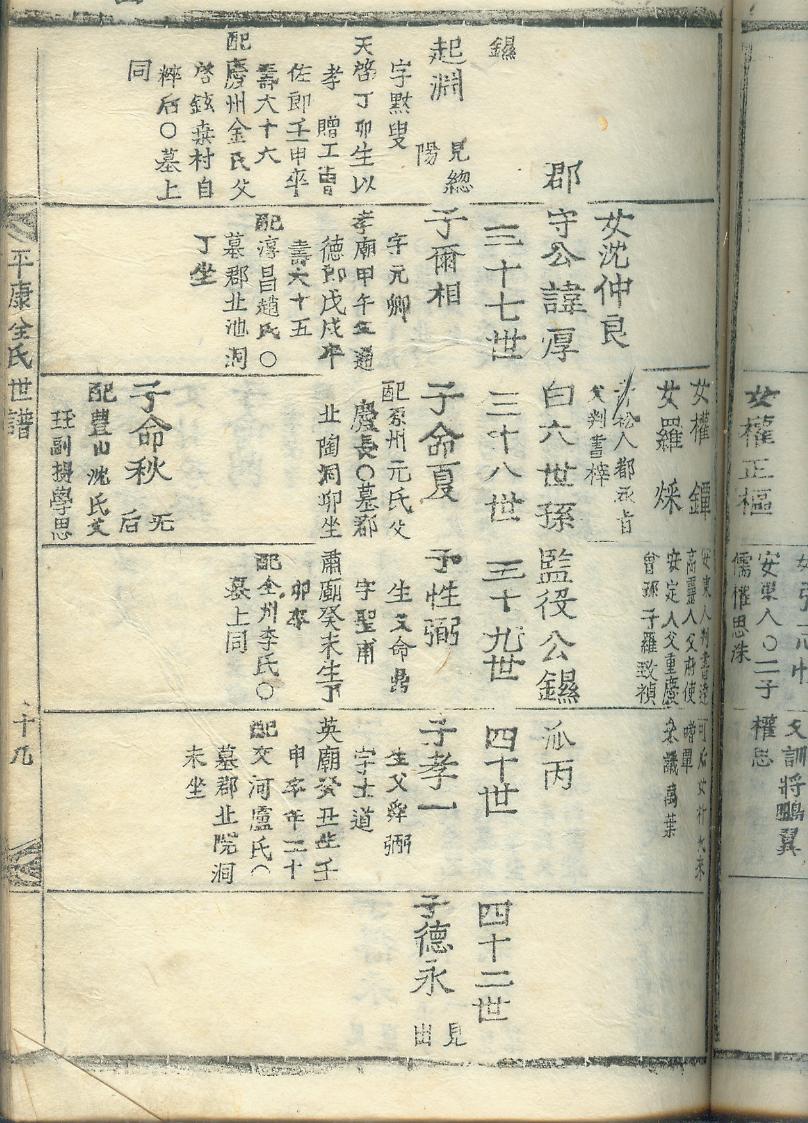 女權正樞
安東人〇二子
儒權思洙
文訓將鵬翼
權思
女沈仲良
父判書梓
女權
女羅
安東人判書
高靈人父府使
安定人父重慶
曾孫子羅致禎
郡守公諱厚
白六世孫
監役公鑞
派丙
三十七世
三十八世
三十九世
四十世
四十二世
鑞
起淵
見總
陽
字默叟
天啓丁卯生以
孝贈工曺
佐郎壬申卒
壽六十六
配慶州金氏父
啓鉉桒村自
粹后〇墓上
同
子爾相
字元卿
孝廟甲午生通
德郎戊戌卒
壽六十五
配淳昌趙氏〇
墓郡北池洞
丁坐
子命夏
配原州元氏父
慶長〇墓郡
北陶洞卯坐
子命秋
无
后
配豊山沈氏父
珏副提學思
子性弼
生父命鼎
字聖甫
肅廟癸未生丁
卯卒
配全州李氏〇
墓上同
子孝一
生父舜弼
字士道
英廟癸丑生壬
申卒年二十
配交河盧氏〇
墓郡北院洞
未坐
子德永
見
出
平康全氏世譜
十九